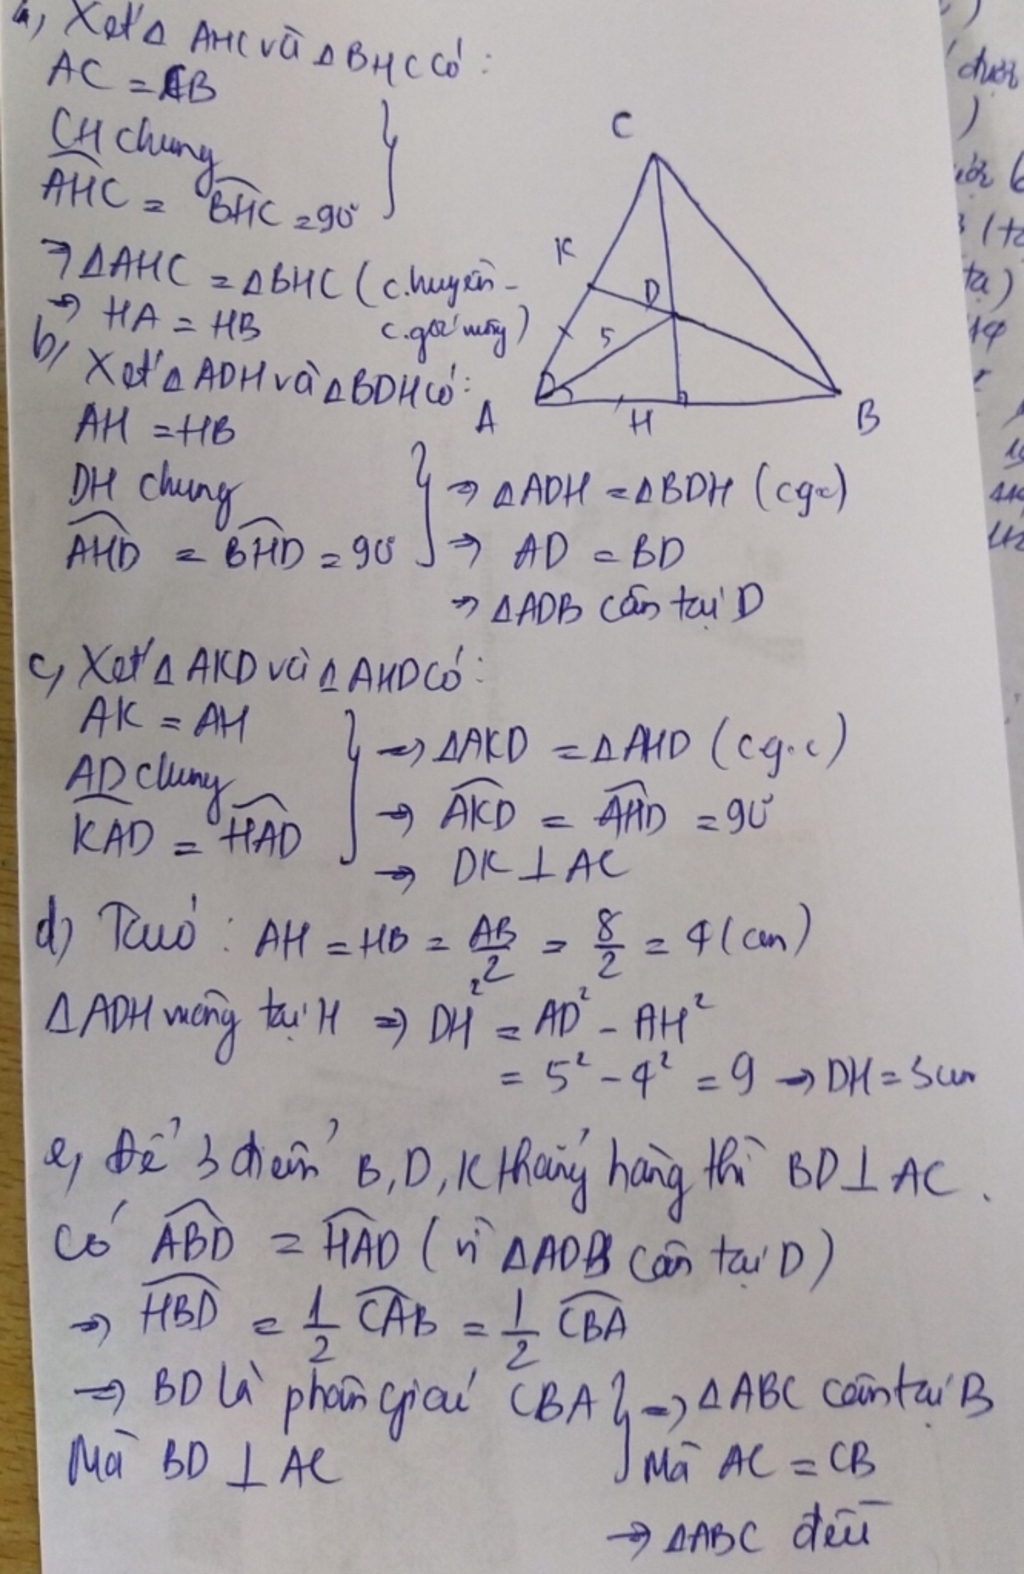 a, Xét Δ AHC và Δ BHC có :
AC = CB
CH chung
AHC = BHC = 90°
→ ΔAHC = ΔBHC (c.huyền -
c.góc vuông)
→ HA = HB
b, Xét Δ ADH và Δ BDH có :
AH = HB
DH chung
AHD = BHD = 90°
→ ΔADH = ΔBDH (cgc)
→ AD = BD
→ ΔADB cân tại D
C
K
D
5
A
H
B
c, Xét Δ AKD và Δ AHD có :
AK = AH
AD chung
KAD = HAD
→ ΔAKD = ΔAHD (c.g.c)
→ AKD = AHD = 90°
→ DK ⊥ AC
d) Ta có : AH = HB = AB/2 = 8/2 = 4 (cm)
ΔADH vuông tại H → DH² = AD² - AH²
= 5² - 4² = 9 → DH = 3cm
e, Để 3 điểm B, D, K thẳng hàng thì BD ⊥ AC.
Có ABD = HAD (vì ΔADB cân tại D)
→ HBD = 1/2 CAB = 1/2 CBA
→ BD là phân giác CBA
Mà BD ⊥ AC
→ ΔABC cân tại B
Mà AC = CB
→ ΔABC đều